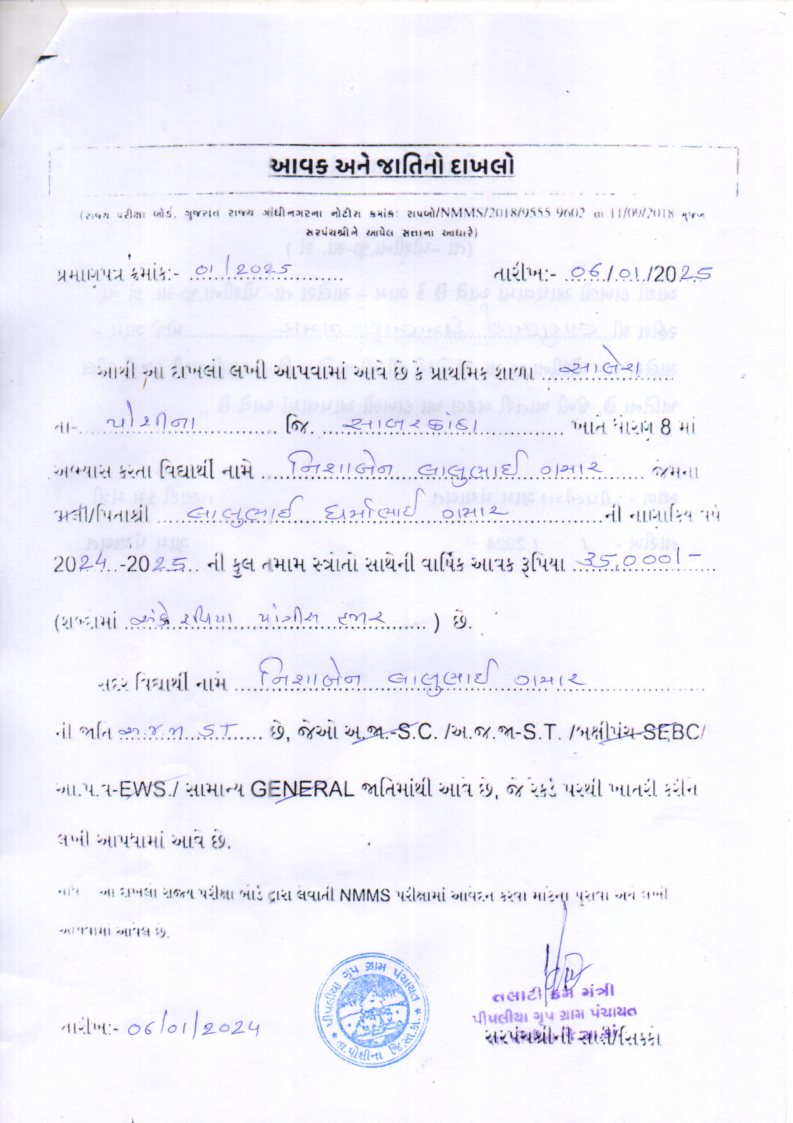 આવક અને જાતિનો દાખલો
(રાજ્ય પરીક્ષા બોર્ડ, ગુજરાત રાજ્ય ગાંધીનગરના નોટીસ ક્રમાંક: રાપબો/NMMS/2018/9555-9602 તા 11/09/2018 મુજબ
સરપંચશ્રીને આપેલ સત્તાના આધારે)
પ્રમાણપત્ર ક્રમાંક:- 01/2025 તારીખ:- 06/01/2025
આથી આ દાખલો લખી આપવામાં આવે છે કે પ્રાથમિક શાળા
તા- પોશીના જિ. સાબરકાંઠા ખાતે ધોરણ 8 માં
અભ્યાસ કરતા વિદ્યાર્થી નામે નિશાબેન લાલુભાઈ ગમાર જેમના
માતા/પિતાશ્રી લાલુભાઈ ધર્માભાઈ ગમાર ની નાણાકિય વર્ષ
2024-2025 ની કુલ તમામ સ્ત્રોતો સાથેની વાર્ષિક આવક રૂપિયા 35,000/-
(શબ્દોમાં અંકે રૂપિયા પાંત્રીસ હજાર ) છે.
સદર વિદ્યાર્થી નામે નિશાબેન લાલુભાઈ ગમાર
ની જાતિ અ.જ.જા ST છે, જેઓ અ.જા.-S.C. /અ.જ.જા-S.T. /બક્ષીપંચ-SEBC/
આ.પ.વ-EWS./ સામાન્ય GENERAL જાતિમાંથી આવે છે, જે રેકર્ડ પરથી ખાતરી કરીને
લખી આપવામાં આવે છે.
નોંધ આ દાખલો રાજ્ય પરીક્ષા બોર્ડ દ્વારા લેવાતી NMMS પરીક્ષામાં આવેદન કરવા માટેના પુરાવા અર્થે લખી
આપવામાં આવેલ છે.
પીપલીયા ગૃપ ગ્રામ પંચાયત
તા.પોશીના જી.સા.કાં.
તલાટી કમ મંત્રી
પીપલીયા ગૃપ ગ્રામ પંચાયત
તારીખ:- 06/01/2024 સરપંચશ્રીની સહી/સિક્કો